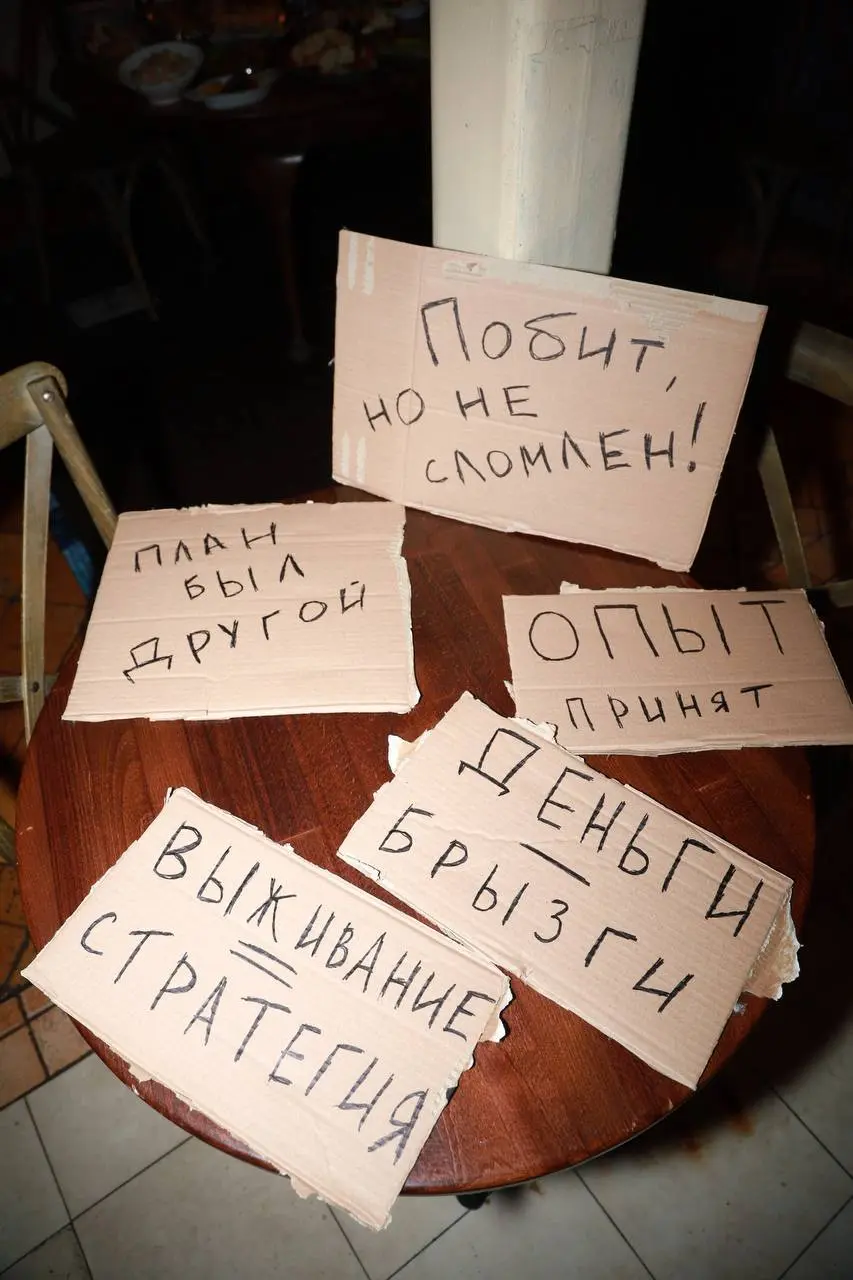 Побит,
но не
сломлен!
План
был
другой
Опыт
принят
Деньги
—
брызги
Выживание
=
стратегия